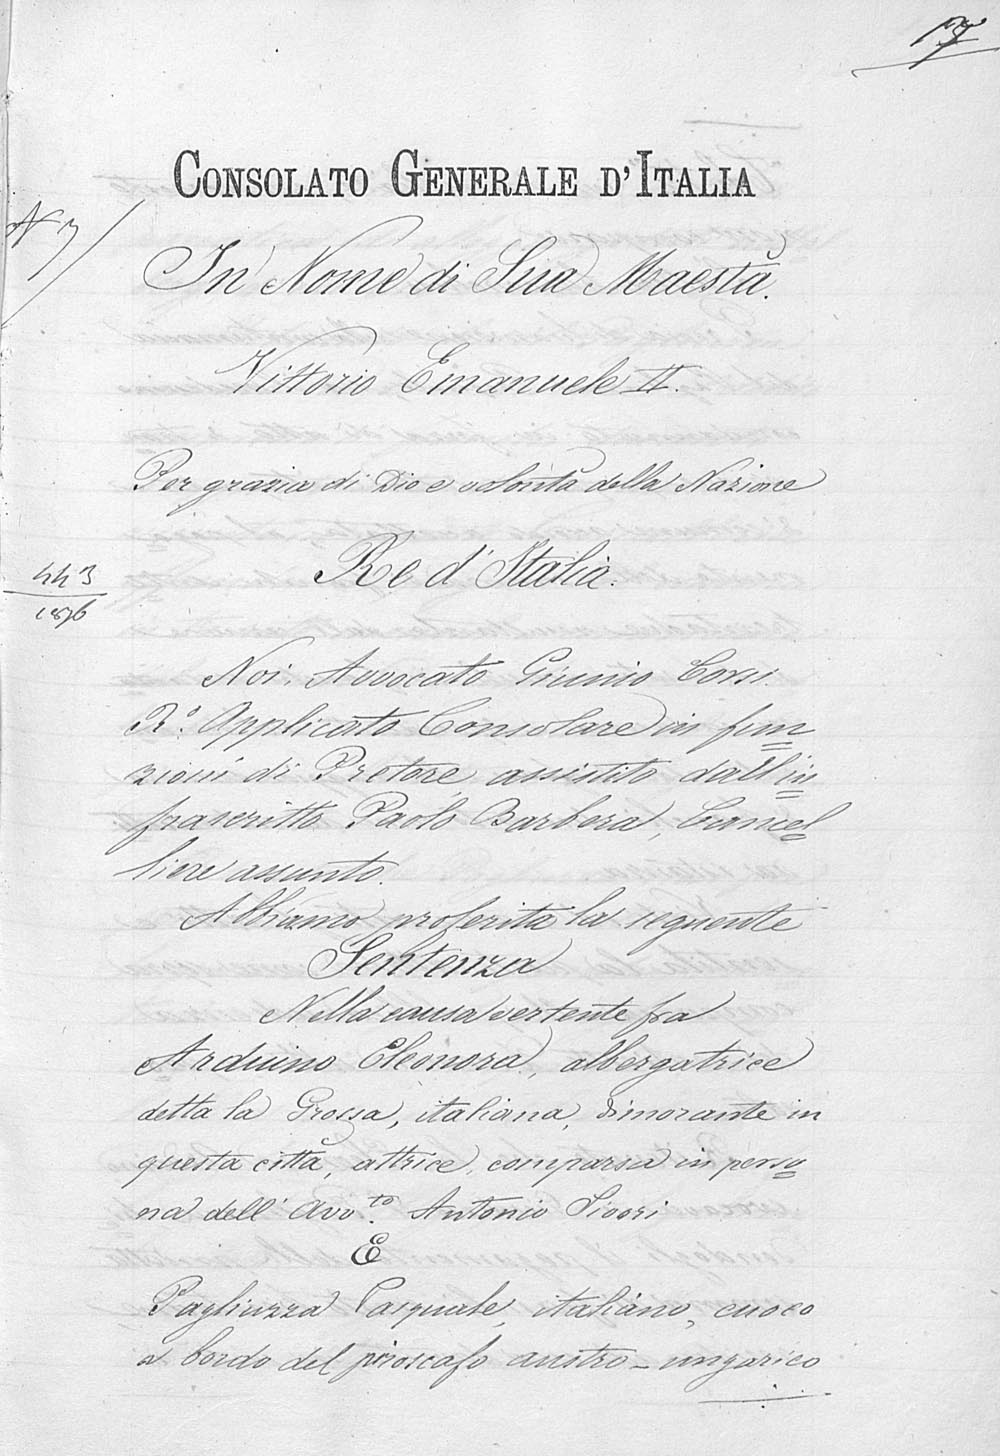 17
CONSOLATO GENERALE D'ITALIA
N 7
In Nome di Sua Maestà.
Vittorio Emanuele II.
Per grazia di Dio e volontà della Nazione
Re d'Italia.
443
1876
Noi, Avvocato Giunio Corsi
R.o Applicato Consolare in fun
zioni di Pretore assistito dall'in
frascritto Paolo Barbera, Cancel
liere assunto.
Abbiamo proferita la seguente
Sentenza
Nella causa vertente fra
Arduino Eleonora, albergatrice
detta la Grossa, italiana, dimorante in
questa città, attrice, comparsa in perso
na dell'Avv.to Antonio Sivori
E
Pagliuzza Pasquale, italiano, cuoco
a bordo del piroscafo austro-ungarico